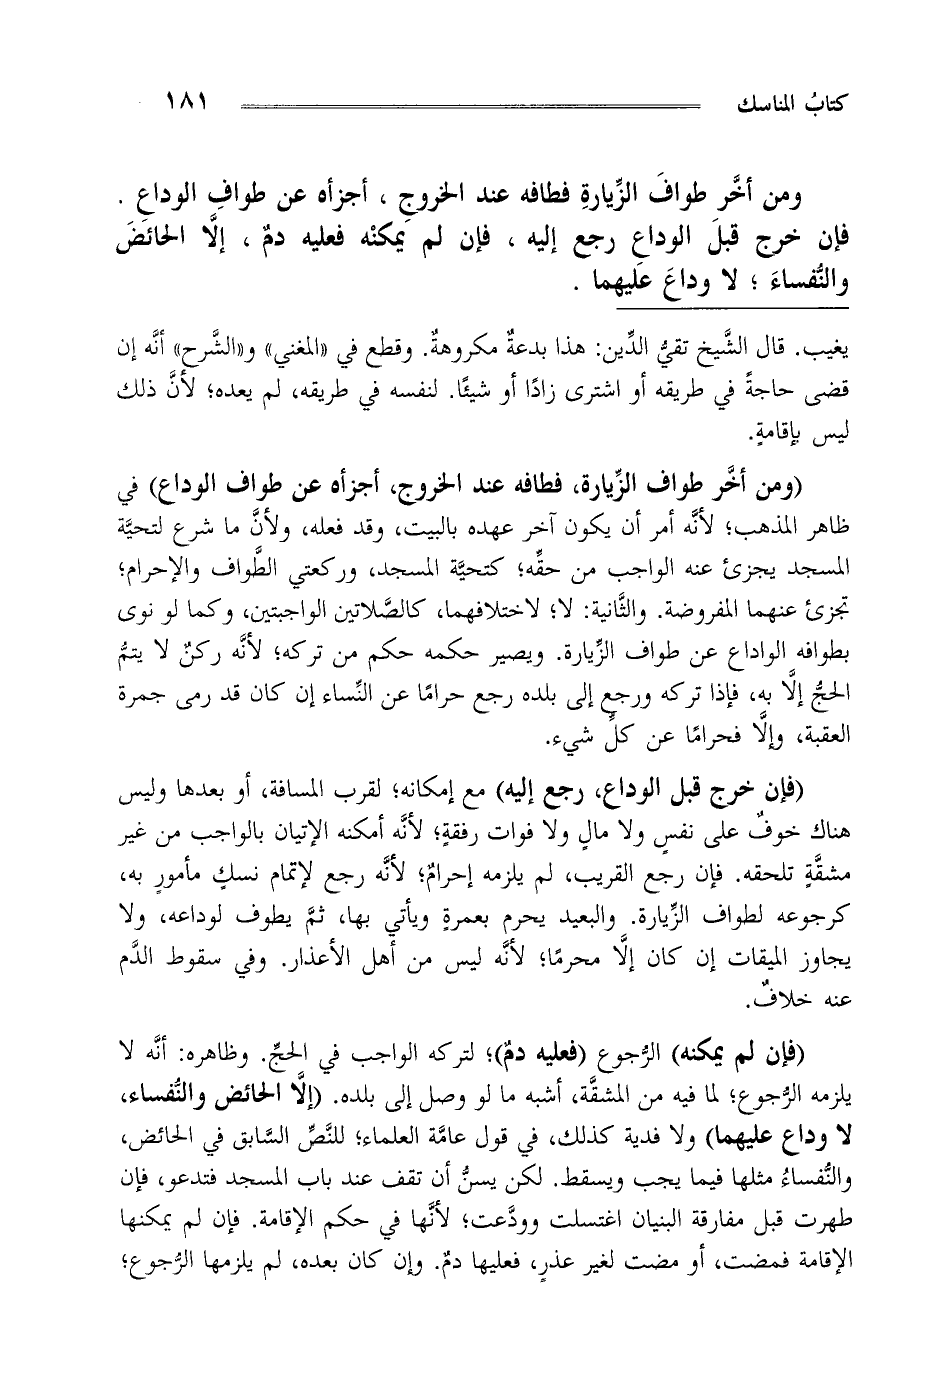 كتابُ المناسك ١٨١
ومن أخَّر طوافَ الزِّيارةِ فطافه عند الخروجِ ، أجزأه عن طوافِ الوداعِ .
فإن خرج قبلَ الوداعِ رجع إليه ، فإن لم يمكنْه فعليه دمٌ ، إلَّا الحائضَ
والنُّفساءَ ؛ لا وداعَ عليهما .
يغيب. قال الشَّيخ تقيُّ الدِّين: هذا بدعةٌ مكروهةٌ. وقطع في «المغني» و«الشَّرح» أنَّه إن
قضى حاجةً في طريقه أو اشترى زادًا أو شيئًا. لنفسه في طريقه، لم يعده؛ لأنَّ ذلك
ليس بإقامةٍ.
(ومن أخَّر طواف الزِّيارة، فطافه عند الخروج، أجزأه عن طواف الوداع) في
ظاهر المذهب؛ لأنَّه أمر أن يكون آخر عهده بالبيت، وقد فعله، ولأنَّ ما شرع لتحيَّة
المسجد يجزئ عنه الواجب من حقِّه؛ كتحيَّة المسجد، وركعتي الطَّواف والإحرام؛
تجزئ عنهما المفروضة. والثَّانية: لا؛ لاختلافهما، كالصَّلاتين الواجبتين، وكما لو نوى
بطوافه الواداع عن طواف الزِّيارة. ويصير حكمه حكم من تركه؛ لأنَّه ركنٌ لا يتمُّ
الحجُّ إلَّا به، فإذا تركه ورجع إلى بلده رجع حرامًا عن النِّساء إن كان قد رمى جمرة
العقبة، وإلَّا فحرامًا عن كلِّ شيء.
(فإن خرج قبل الوداع، رجع إليه) مع إمكانه؛ لقرب المسافة، أو بعدها وليس
هناك خوفٌ على نفسٍ ولا مالٍ ولا فوات رفقةٍ؛ لأنَّه أمكنه الإتيان بالواجب من غير
مشقَّةٍ تلحقه. فإن رجع القريب، لم يلزمه إحرامٌ؛ لأنَّه رجع لإتمام نسكٍ مأمورٍ به،
كرجوعه لطواف الزِّيارة. والبعيد يحرم بعمرةٍ ويأتي بها، ثمَّ يطوف لوداعه، ولا
يجاوز الميقات إن كان إلَّا محرمًا؛ لأنَّه ليس من أهل الأعذار. وفي سقوط الدَّم
عنه خلافٌ.
(فإن لم يمكنه) الرُّجوع (فعليه دمٌ)؛ لتركه الواجب في الحجِّ. وظاهره: أنَّه لا
يلزمه الرُّجوع؛ لما فيه من المشقَّة، أشبه ما لو وصل إلى بلده. (إلَّا الحائض والنُّفساء،
لا وداع عليهما) ولا فدية كذلك، في قول عامَّة العلماء؛ للنَّصِّ السَّابق في الحائض،
والنُّفساءُ مثلها فيما يجب ويسقط. لكن يسنُّ أن تقف عند باب المسجد فتدعو، فإن
طهرت قبل مفارقة البنيان اغتسلت وودَّعت؛ لأنَّها في حكم الإقامة. فإن لم يمكنها
الإقامة فمضت، أو مضت لغير عذرٍ، فعليها دمٌ. وإن كان بعده، لم يلزمها الرُّجوع؛